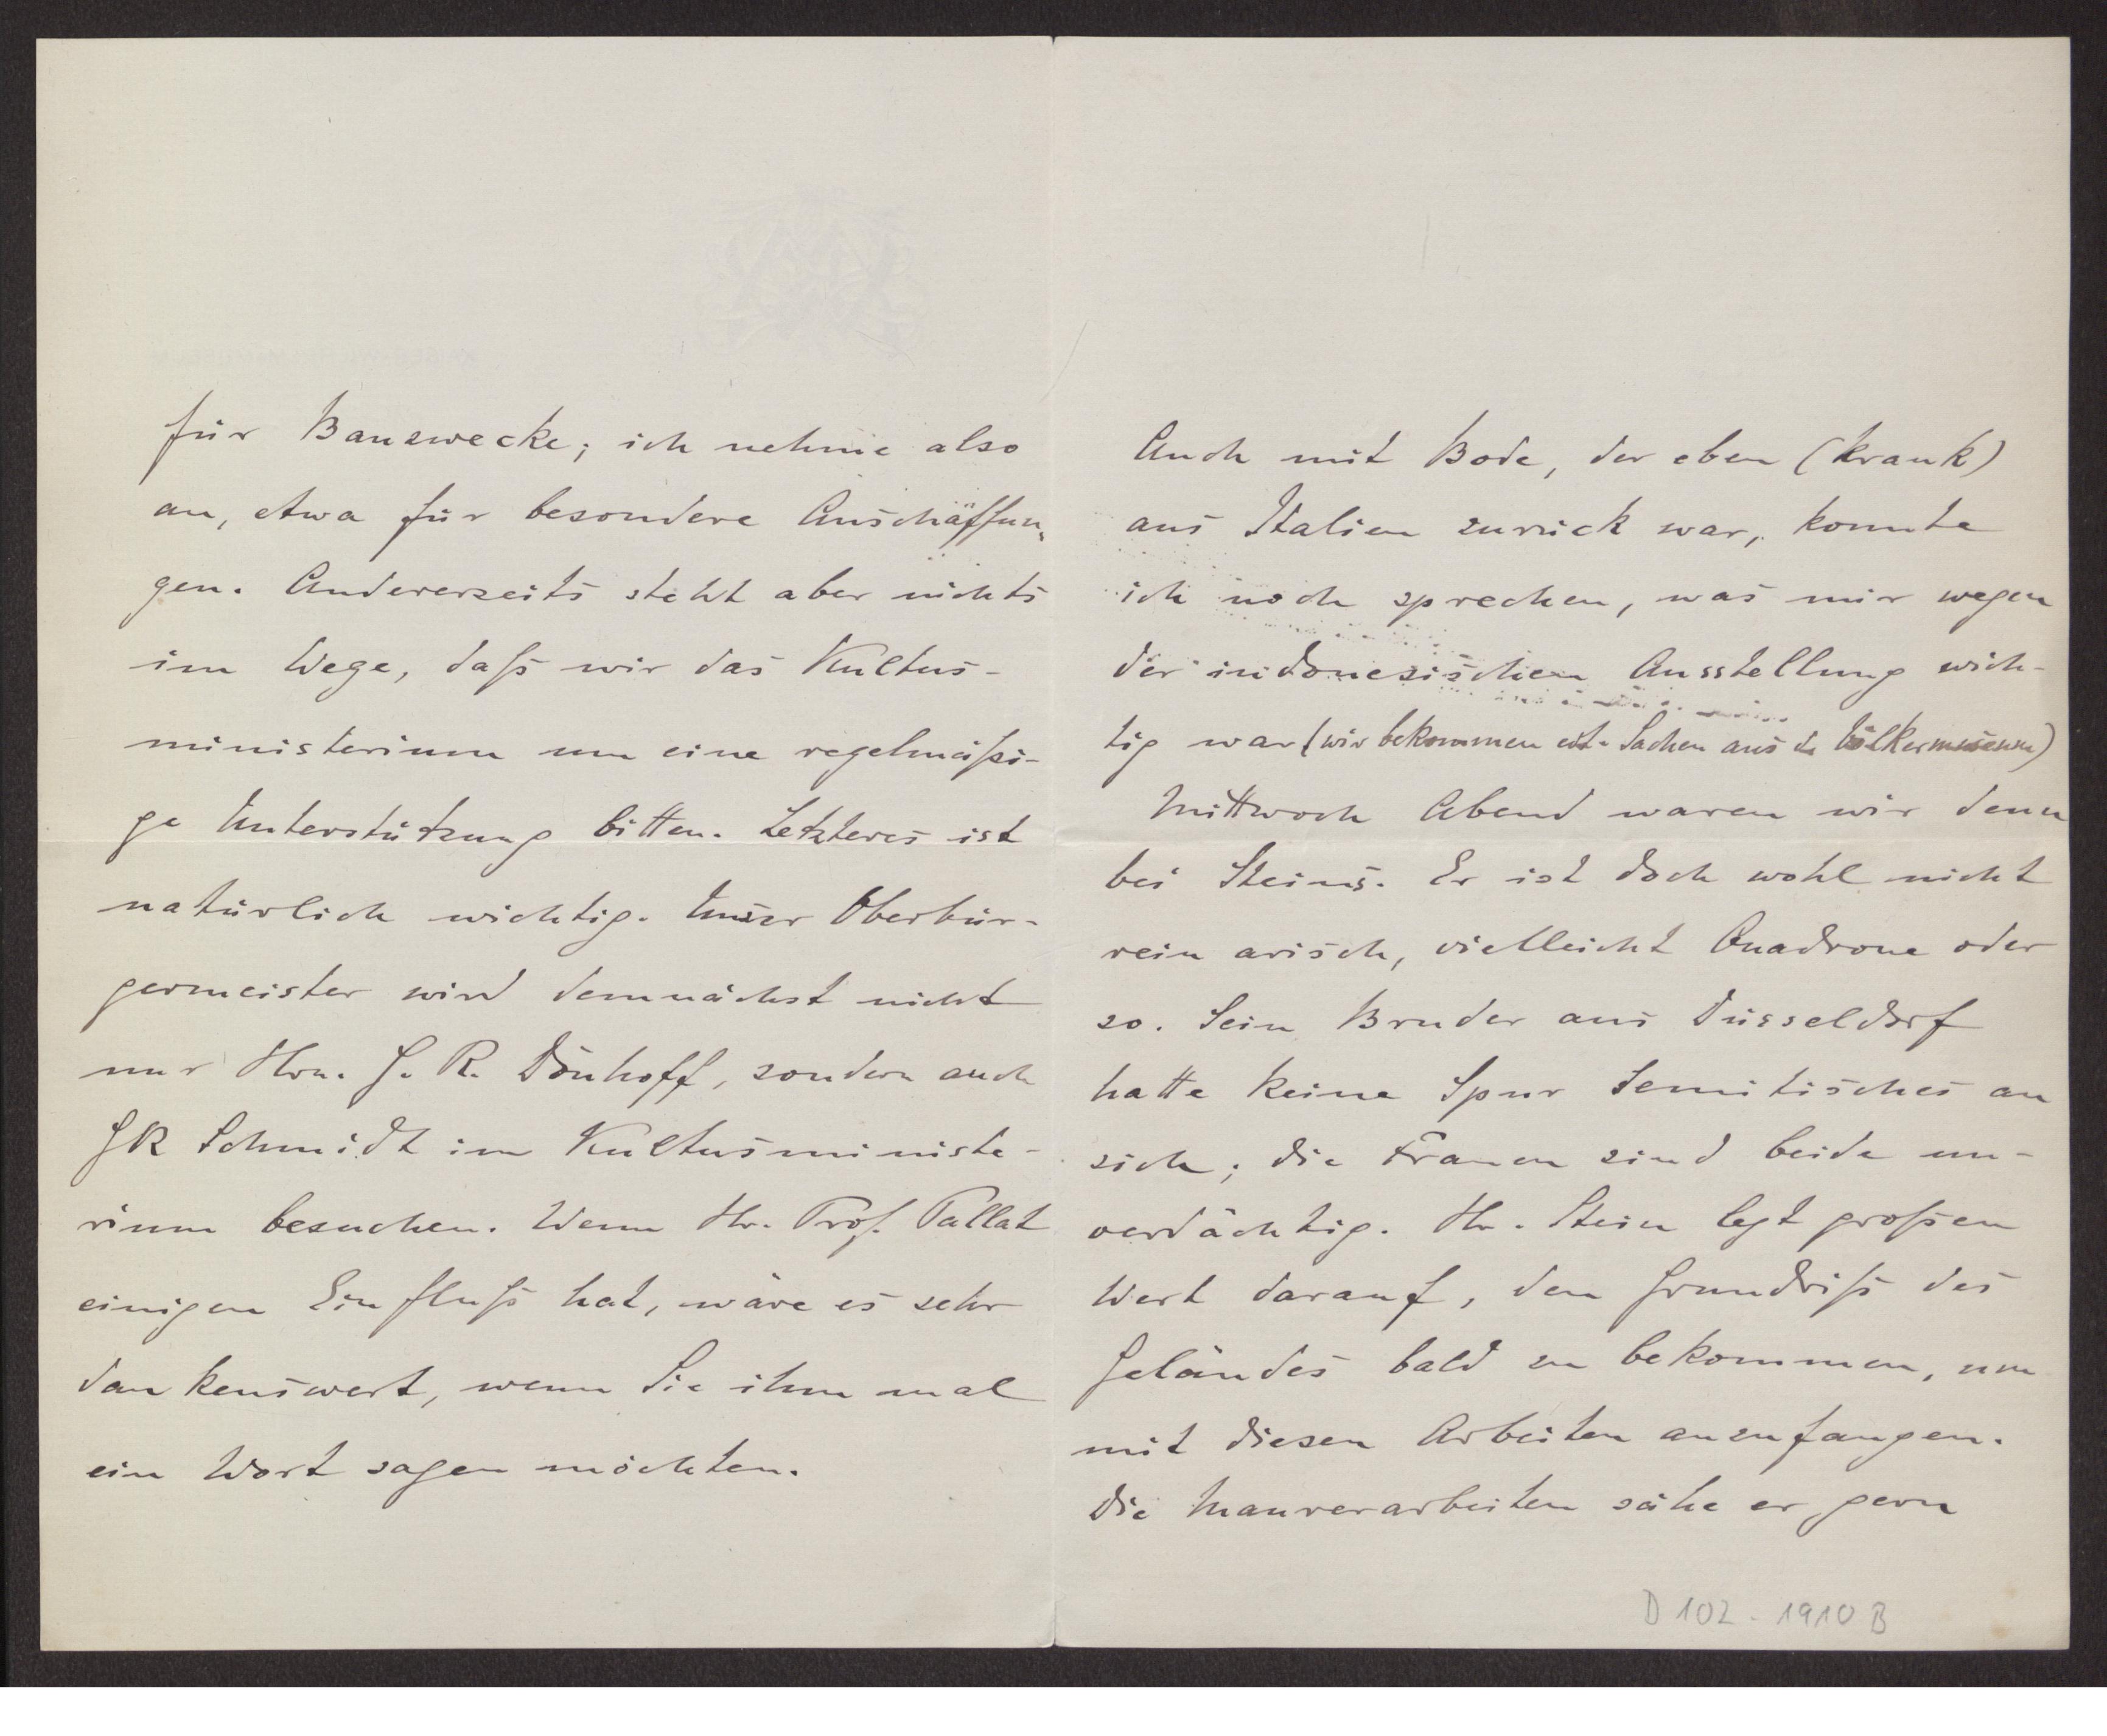 für Bauzwecke; ich nehme also
an, etwa für besondere Anschaffun-
gen. Andererseits steht aber nichts
im Wege, daß wir das Kultus-
ministerium um eine regelmäßi-
ge Unterstützung bitten. Letzteres ist
natürlich wichtig. Unser Oberbür-
germeister wird demnächst nicht
nur Hrn. G. R. Dönhoff, sondern auch
GR Schmidt im Kultusministe-
rium besuchen. Wenn Hr. Prof. Pallat
einigen Einfluß hat, wäre es sehr
dankenswert, wenn Sie ihm mal
ein Wort sagen möchten.
Auch mit Bode, der eben (krank)
aus Italien zurück war, konnte
ich noch sprechen, was mir wegen
der indonesischen Ausstellung wich-
tig war (wir bekommen Sachen aus d. Völkermuseum)
Mittwoch Abend waren wir denn
bei Steins. Er ist doch wohl nicht
rein arisch, vielleicht Quadrone oder
so. Sein Bruder aus Düsseldorf
hatte keine Spur Semitisches an
sich; die Frauen sind beide un-
verdächtig. Hr. Stein legt großen
Wert darauf, den Grundriß des
Geländes bald zu bekommen, um
mit diesen Arbeiten anzufangen.
Die Maurerarbeiten sähe er gern
D 102 - 1910 B